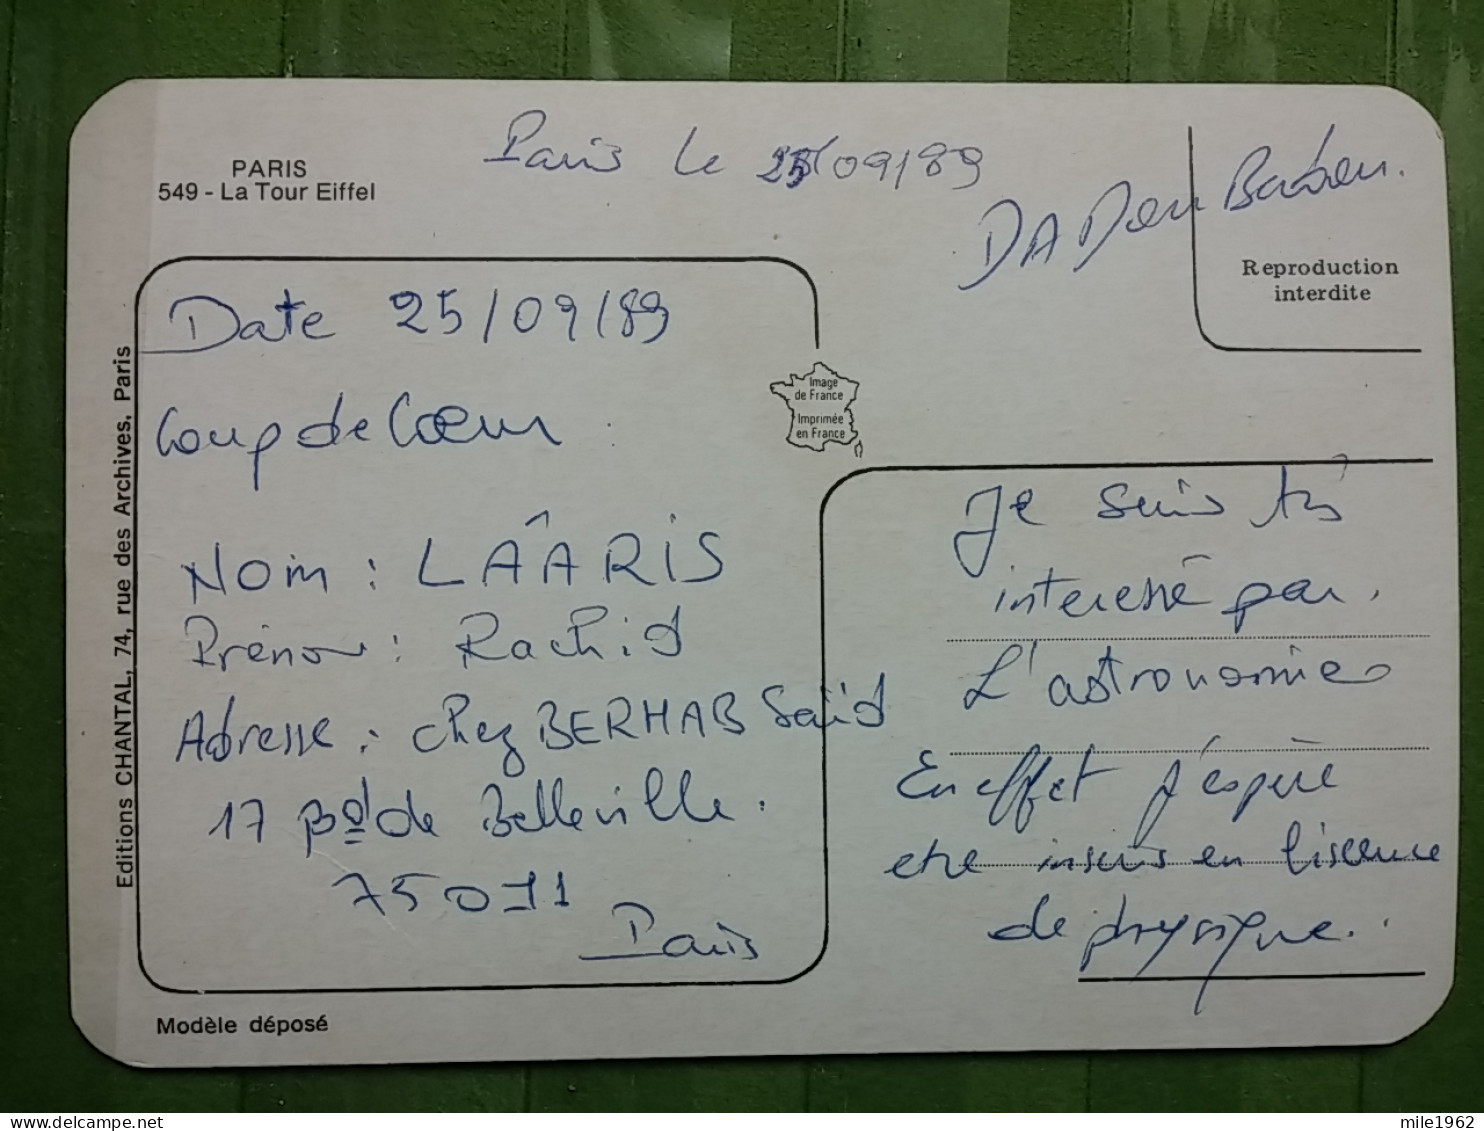 PARIS
549 - La Tour Eiffel
Paris le 25/09/89
Reproduction
interdite
Date 25/09/89
Coup de Cœur
Image
de France
Imprimée
en France
Nom : LÂARIS
Prénom : Rachid
Adresse : chez BERHAB Saïd
17 Bd de Belleville.
75011
Paris
Je suis très
interessé par.
L'astronomie
En effet j'espère
etre inscris en liscence
de physique.
Editions CHANTAL, 74, rue des Archives. Paris
Modèle déposé
mile1962